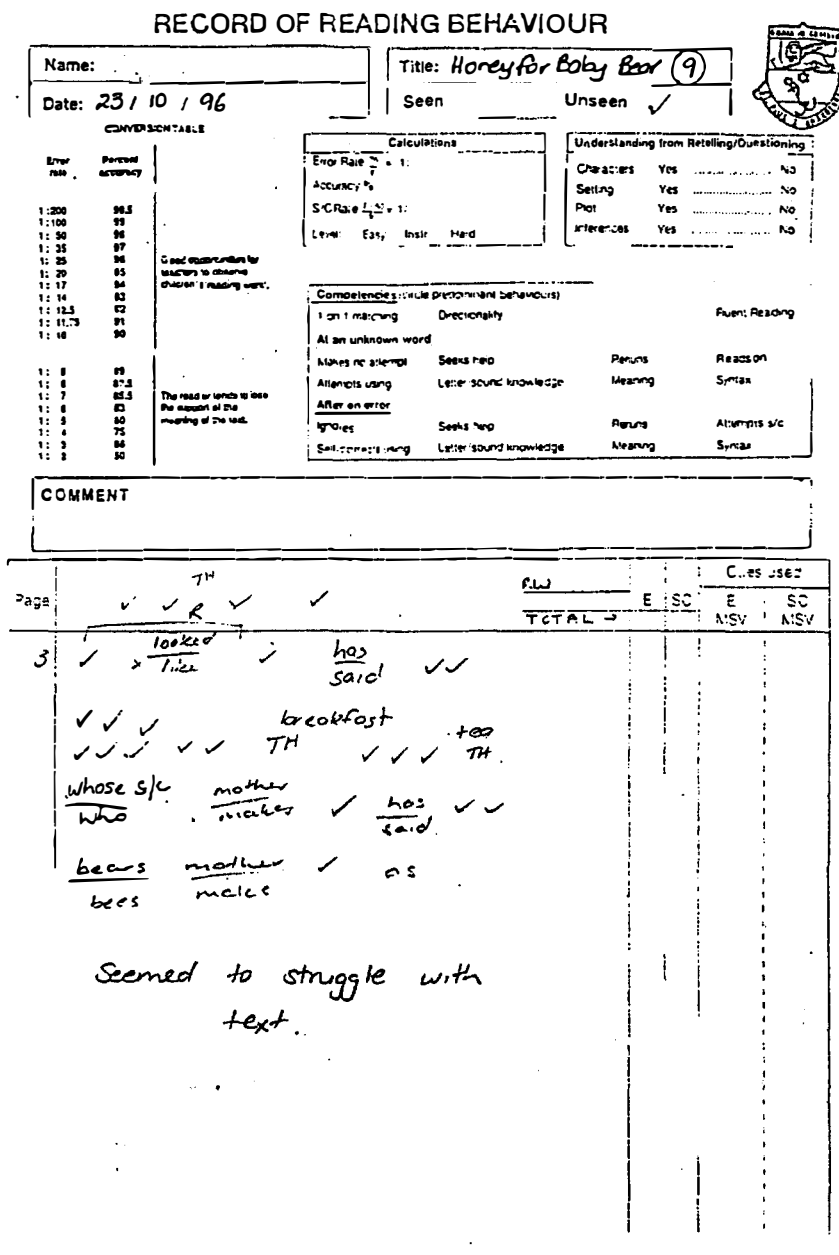 RECORD OF READING BEHAVIOUR
Name:
Date: 23 / 10 / 96
Title: Honey for Baby Bear (9)
Seen Unseen ✓
CONVERSION TABLE
Error rate Percent accuracy
1:200 99.5
1:100 99
1: 50 98
1: 35 97
1: 25 96
1: 20 95
1: 17 94
1: 14 93
1: 12.5 92
1: 11.75 91
1: 10 90
Good opportunities for
teachers to observe
children's "reading work".
1: 9 89
1: 8 87.5
1: 7 85.5
1: 6 83
1: 5 80
1: 4 75
1: 3 66
1: 2 50
The reader tends to lose
the support of the
meaning of the text.
Calculations
Error Rate = 1:
Accuracy %
S/C Rate = 1:
Level: Easy Instr Hard
Understanding from Retelling/Questioning
Characters Yes .......... No
Setting Yes .......... No
Plot Yes .......... No
Inferences Yes .......... No
Competencies (circle predominant behaviours)
1 on 1 matching Directionality Fluent Reading
At an unknown word
Makes no attempt Seeks help Reruns Reads on
Attempts using Letter/sound knowledge Meaning Syntax
After an error
Ignores Seeks help Reruns Attempts s/c
Self-corrects using Letter/sound knowledge Meaning Syntax
COMMENT
Page R.W. TOTAL → E SC Cues used E MSV SC MSV
TH
✓ ✓ ✓ ✓
R
3 ✓ looked ✓ has ✓ ✓
like said
✓ ✓ ✓ breakfast tea
✓ ✓ ✓ ✓ ✓ TH ✓ ✓ ✓ TH
whose s/c mother ✓ has ✓ ✓
who makes said
bears mother ✓ as
bees makes
Seemed to struggle with
text.